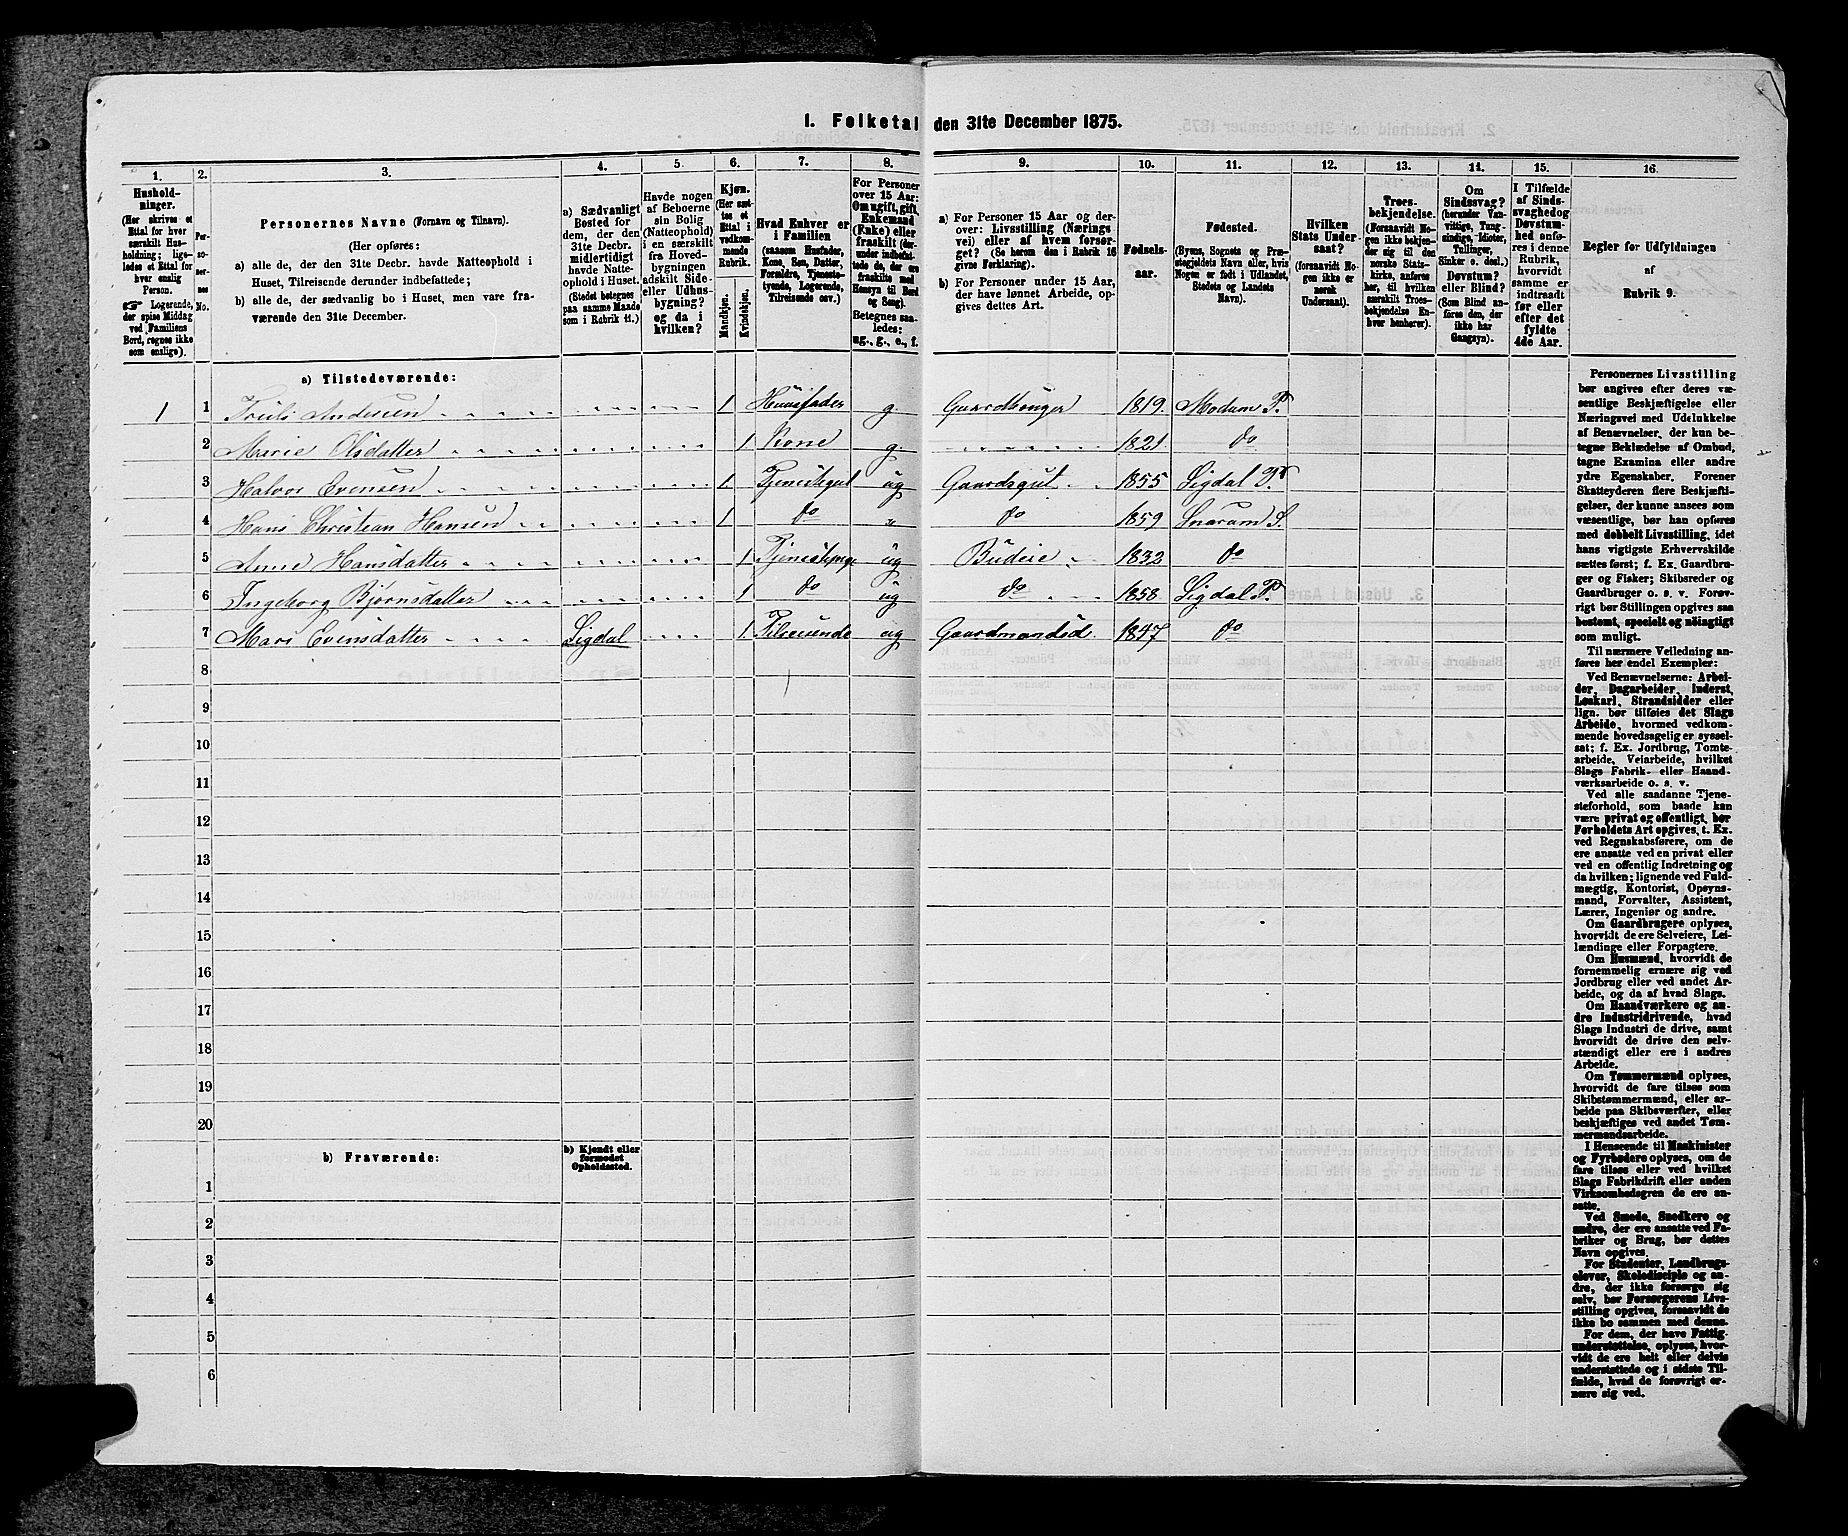 1. Folketal den 31te December 1875.
1. 2. 3. 4. 5. 6. 7. 8. 9. 10. 11. 12. 13. 14. 15. 16.
Hushold-
ninger.
(Her skrives et
Ettal for hver
særskilt Hus-
holdning; lige-
ledes et Ettal for
hver enslig
Person.
☞ Logerende,
der spise Middag
ved Familiens
Bord, regnes ikke
som enslige).
Per-
so-
ner-
nes
No.
Personernes Navne (Fornavn og Tilnavn).
(Her opføres:
a) alle de, der den 31te Decbr. havde Natteophold i
Huset, Tilreisende derunder indbefattede;
b) alle de, der sædvanlig bo i Huset, men vare fra-
værende den 31te December.
a) Sædvanligt
Bosted for
dem, der den
31te Decbr.
midlertidigt
havde Natte-
ophold i Huset.
(Stedet betegnes
paa samme Maade
som i Rubrik 11.)
Havde nogen
af Beboerne
sin Bolig
(Natteophold)
i en særskilt
fra Hoved-
bygningen
adskilt Side-
eller Udhus-
bygning?
og da i
hvilken?
Kjøn.
(Her sæt-
tes et
Ettal i
vedkom-
mende
Rubrik.
Mandkjøn.
Kvindekjøn.
Hvad Enhver er
i Familien
(saasom Husfader,
Kone, Søn, Datter,
Forældre, Tjeneste-
tyende, Logerende,
Tilreisende osv.)
For Personer
over 15 Aar:
Om ugift, gift,
Enkemand
(Enke) eller
fraskilt (der-
under indbefat-
tede de, der ere
fraskilte med
Hensyn til Bord
og Seng).
Betegnes saa-
ledes:
ug., g., e., f.
a) For Personer 15 Aar og der-
over: Livsstilling (Nærings
vei) eller af hvem forsør-
get? (Se herom den i Rubrik 16
givne Forklaring).
b) For Personer under 15 Aar,
der have lønnet Arbeide, op-
gives dettes Art.
Fødsels-
aar.
Fødested.
(Byens, Sognets og Præ-
stegjeldets Navn eller, hvis
Nogen er født i Udlandet,
Stedets og Landets
Navn).
Hvilken
Stats Under-
saat?
(forsaavidt No-
gen ikke er
norsk
Undersaat).
Troes-
bekjendelse.
(Forsaavidt No-
gen ikke bekjen-
der sig til den
norske Stats-
kirke, anføres
her, til hvilken
særskilt Troes-
bekjendelse En-
hver henhører).
Om
Sindssvag?
(herunder Van-
vittige, Tung-
sindige, Idioter,
Tullinger,
Sinker o. desl.).
Døvstum?
eller Blind?
(Som Blind an-
føres den, der
ikke har
Gangsyn).
I Tilfælde
af Sinds-
svaghed og
Døvstum-
hed anfø-
res i denne
Rubrik,
hvorvidt
samme er
indtraadt
før eller
efter det
fyldte
4de Aar.
Regler for Udfyldningen
af
Rubrik 9.
a) Tilstedeværende:
1 1 Truls Andersen 1 Huusfader g. Gaardbruger 1819. Modum P.
2 Marie Olsdatter 1 Kone g. 1821. do
3 Halvor Evensen 1 Tjenistegut ug Gaardsgut 1855 Sigdal P.
4 Hans Christian Hansen 1 do " do 1859 Snarum S.
5 Anne Hansdatter 1 ug Budeie 1832 do
6 Ingeborg Bjørnsdatter 1 do ug do 1858 Sigdal P.
7 Mari Evensdatter Sigdal 1 Tilreisende ug Gaardmandsd. 1847 do
8
9
10
11
12
13
14
15
16
17
18
19
20
b) Fraværende:
b) Kjendt eller
formodet
Opholdssted.
1
2
3
4
5
6
Personernes Livsstilling
bør angives efter deres væ-
sentlige Beskjæftigelse eller
Næringsvei med Udelukkelse
af Benævnelser, der kun be-
tegne Beklædelse af Ombud,
tagne Examina eller andre
ydre Egenskaber. Forener
Skatteyderen flere Beskjæfti-
gelser, der kunne ansees som
væsentlige, bør han opføres
med dobbelt Livsstilling, idet
hans vigtigste Erhvervskilde
sættes først; f. Ex. Gaardbru-
ger og Fisker; Skibsreder og
Gaardbruger o. s. v. Forøv-
rigt bør Stillingen opgives saa
bestemt, specielt og nøiagtigt
som muligt.
Til nærmere Veiledning an-
føres her endel Exempler:
Ved Benævnelserne: Arbei-
der, Dagarbeider, Inderst,
Løskarl, Strandsidder eller
lign. bør tilføies det Slags
Arbeide, hvormed vedkom-
mende hovedsagelig er syssel-
sat; f. Ex. Jordbrug, Tomte-
arbeide, Veiarbeide, hvilket
Slags Fabrik- eller Haand-
værksarbeide o. s. v.
Ved alle saadanne Tjene-
steforhold, som baade kan
være privat og offentligt, bør
Forholdets Art opgives, t. Ex.
ved Regnskabsførere, om de
ere ansatte ved en privat eller
ved en offentlig Indretning og
da hvilken; lignende ved Fuld-
mægtig, Kontorist, Opsyns-
mand, Forvalter, Assistent,
Lærer, Ingeniør og andre.
Om Gaardbrugere oplyses,
hvorvidt de ere Selveiere, Lei-
lændinge eller Forpagtere.
Om Husmænd, hvorvidt de
fornemmelig ernære sig ved
Jordbrug eller ved andet Ar-
beide, og da af hvad Slags.
Om Haandværkere og an-
dre Industridrivende, hvad
Slags Industri de drive, samt
hvorvidt de drive den selv-
stændigt eller ere i andres
Arbeide.
Om Tømmermænd oplyses,
hvorvidt de fare tilsøs som
Skibstømmermænd, eller ar-
beide paa Skibsværfter, eller
beskjæftiges ved andet Tøm-
mermandsarbeide.
I Henseende til Maskinister
og Fyrbødere oplyses, om de
fare tilsøs eller ved hvilket
Slags Fabrikdrift eller anden
Virksomhedsgren de ere an-
satte.
Ved Smede, Snedkere og
andre, der ere ansatte ved Fa-
briker og Brug, bør dettes
Navn opgives.
For Studenter, Landbrugs-
elever, Skoledisciple og an-
dre, der ikke forsørge sig
selv, bør Forsørgerens Livs-
stilling opgives, forsaavidt de
ikke bo sammen med denne.
For dem, der have Fattig-
understøttelse, oplyses, hvor-
vidt de ere helt eller delvis
understøttede og i sidste Til-
fælde, hvad de forøvrigt er-
nære sig ved.